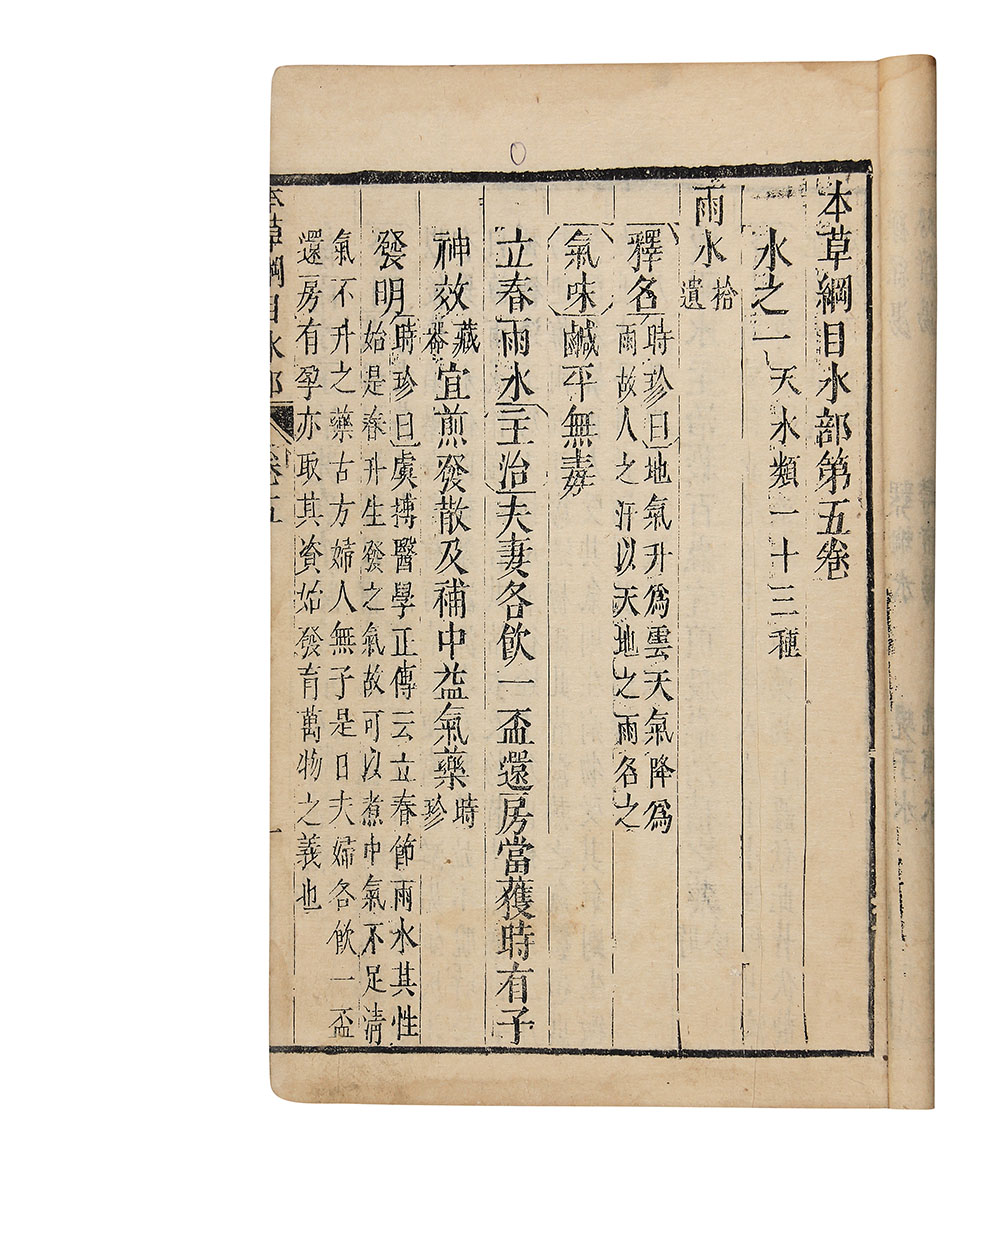 本草綱目水部第五卷
水之一 天水類一十三種
雨水 拾遺
釋名 時珍曰地氣升爲雲天氣降爲
雨故人之汗以天地之雨名之
氣味 鹹平無毒
立春雨水主治夫妻各飲一盃還房當獲時有子
神效 藏器 宜煎發散及補中益氣藥 時珍
發明 時珍曰虞摶醫學正傳云立春節雨水其性
始是春升生發之氣故可以煮中氣不足淸
氣不升之藥古方婦人無子是日夫婦各飲一盃
還房有孕亦取其資始發育萬物之義也
本草綱目水部 卷五 一